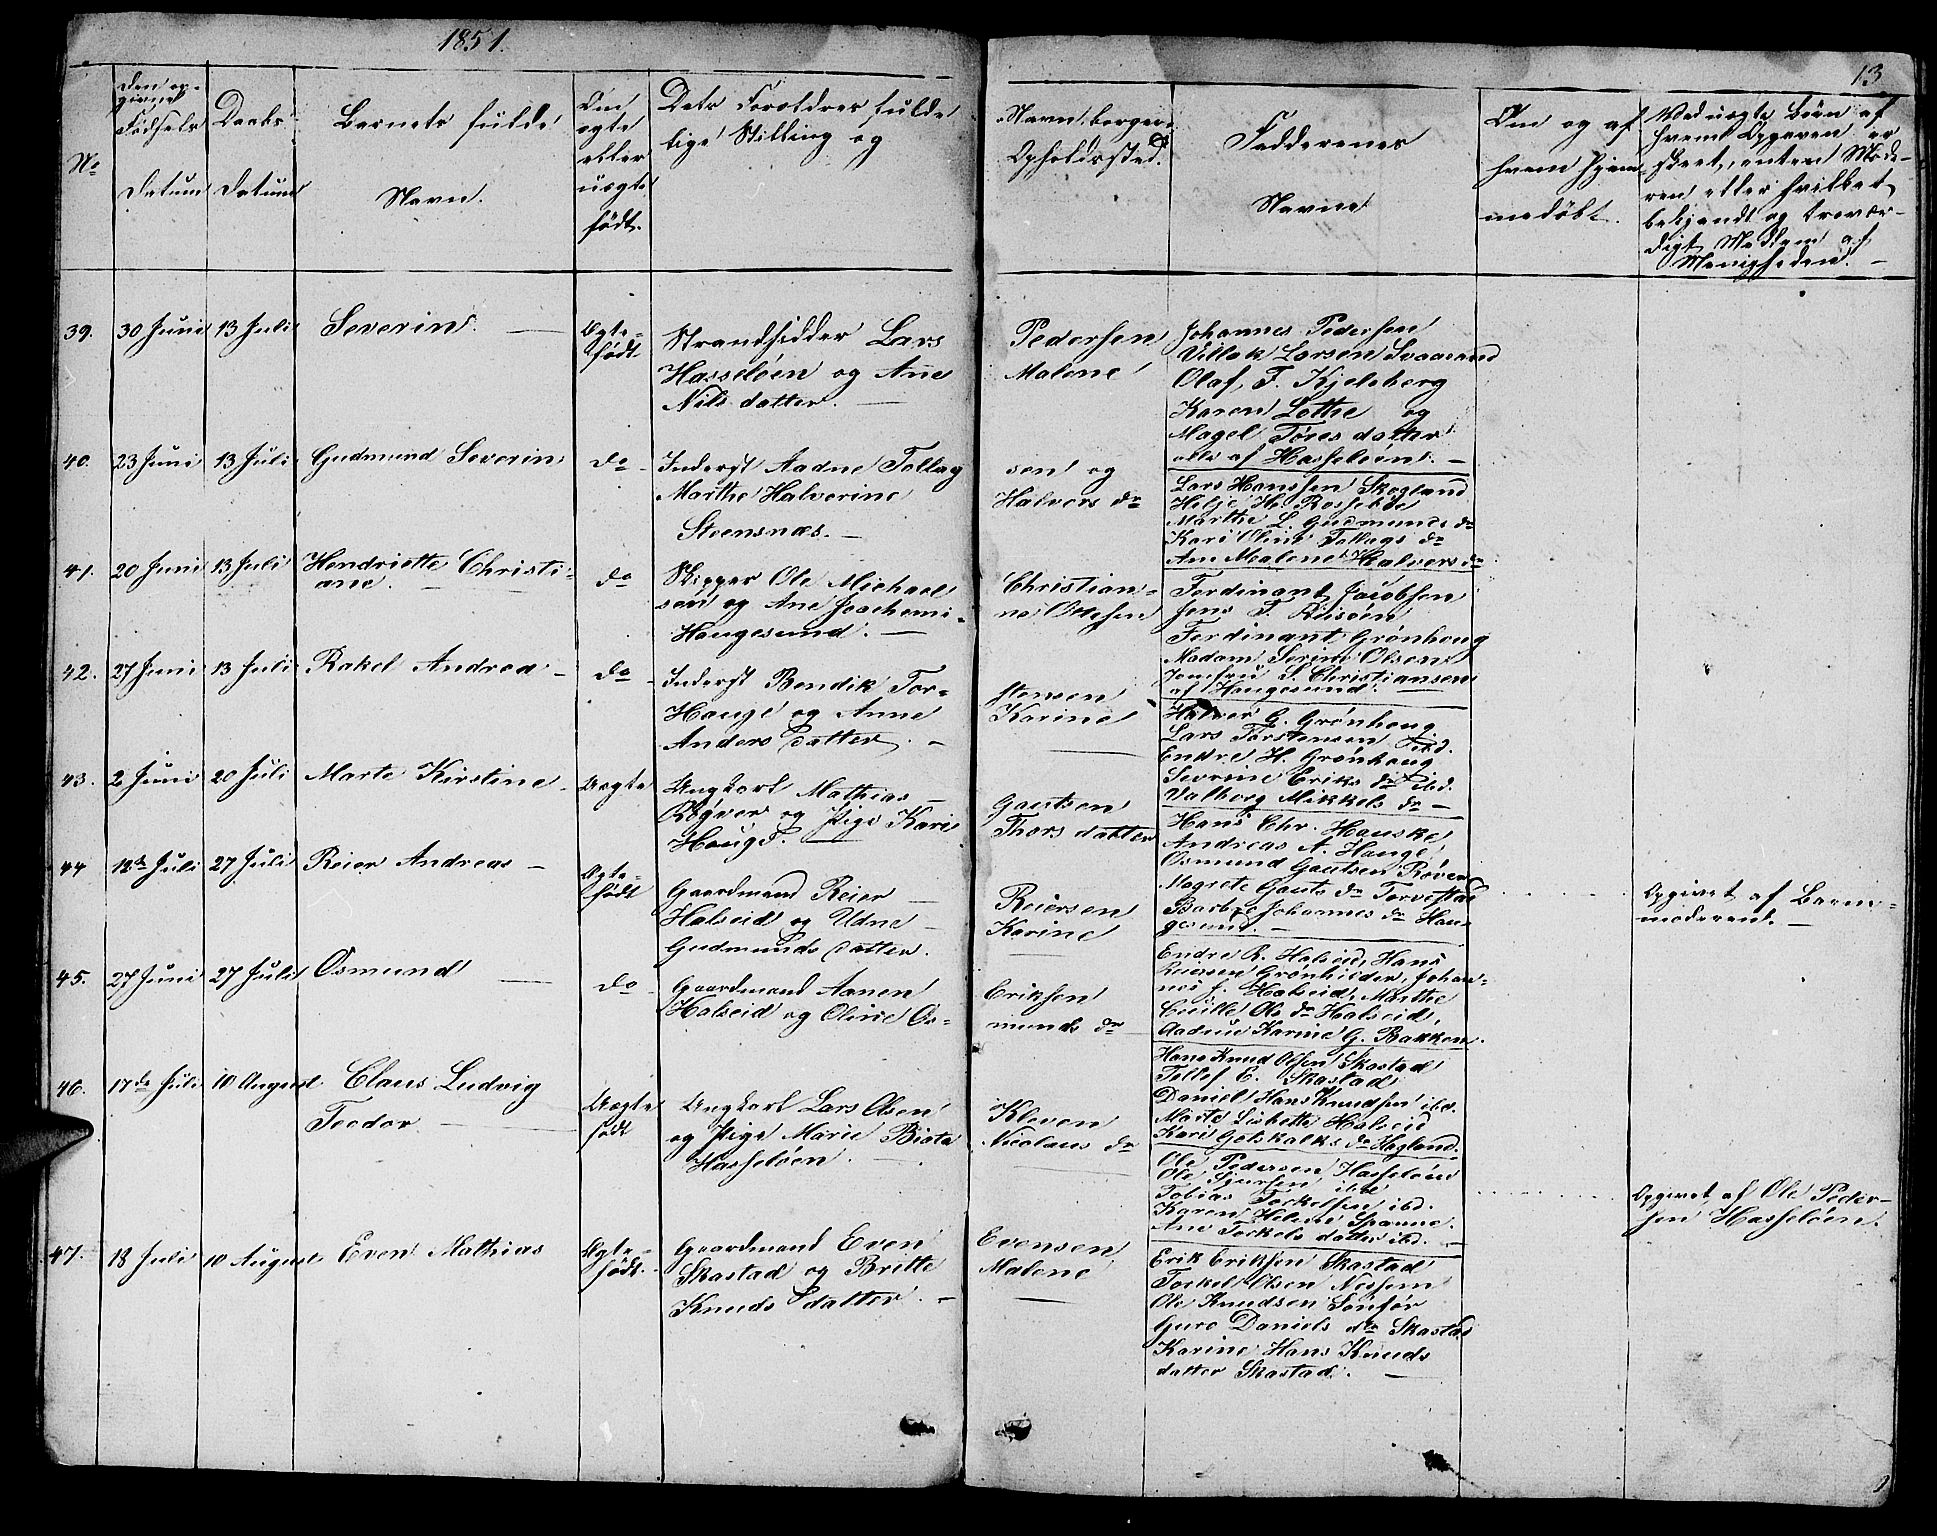 1851.
13
No
Den op-
givne
Fødsels
Datum
Daabs
Datum
Barnets fulde
Navn.
Om
ægte
eller
uægte
født.
Dets Forældres fulde
lige Stilling og
Navn, borger-
Opholdssted.
Faddernes
Navne
Om og af
hvem hjem-
medøbt.
Ved uægte Børn af
hvem Opgaven er
skeet, enten Mode-
ren eller hvilket
bekjendt og troevær-
digt Medlem af
Menigheden. -
39. 30 Juni 13 Juli Severin
Ægte-
født
Strandsidder Lars
Hasseløen og Ane
Nils datter. -
Pedersen
Malene
Johannes Pedersen
Villak Larsen Svaasand
Olaf. T. Kjelsberg
Karen Lothe og
Magel Tøres datter
alle af Hasseløen. -
40. 23 Juni 13 Juli Gudmund Severin do
Inderst Aadne Tollag
Marthe Halverine
Steensnæs. -
sen og
Halvers dr
Lars Hanssen Skogland
Helje H. Rossebøe
Marthe L. Gudmunds dr
Kari Oline Tollags dr
Ane Malene Halvers dr
41. 20 Juni 13 Juli Hendriette Christi-
ane. - do
Skipper Ole Michael
sen og Ane Joachemi-
Haugesund. -
Christian-
ne Ottesen
Ferdinant Jacobsen
Jens T. Risøen
Ferdinant Grønhoug
Madam Serine Olsen
Jomfru S. Christiansen
af Haugesund. -
42. 27 Juni 13 Juli Rakel Andrea - do
Inderst Bendik Tor-
Hauge og Anne
Anders datter. -
stensen
Karine
Halver G. Grønhoug
Lars Torstensen ibd.
Endre H. Grønhoug
Sevrine Eriks dr ibd.
Valborg Mikkels dr -
43. 2 Juni 20 Juli Marte Kirstine - Uægte
Ungkarl Mathias
Røyver og Pige Karie
Hauge. -
Gautsen
Thors datter
Hans Chr. Hauske
Andreas A. Hauge
Osmund Gautsen Røver
Magrete Gauts dr Torvestad
Barbre Johannes dr Hau-
gesund. -
Opgivet af Barne-
moderen. -
44 12te Juli 27 Juli Reier Andreas -
Ægte-
født
Gaardmand Reier
Halseid og Udne
Gudmunds datter.
Reiersen
Karine
Endre R. Halseid, Hans
Reiersen Grønhilder, Johan-
nes J. Halseid, Marthe
Cecille Ols dr Halseid,
Aadine Karine G. Bakken.
45. 27 Juni 27 Juli Osmund do
Gaardmand Aanen
Halseid og Oline Os-
Eriksen
munds dr
Hans Knud Olsen Skastad
Tellef E. Skastad
Daniel Hans Knudsen ibd.
Marte Lisbette Halseid
Kari Gotskalks dr Hagland.
46. 17de Juli 10 August Claus Ludvig
Teodor
Uægte
født
Ungkarl Lars Olsen
og Pige Marie Biata
Hasseløen.
Kleven
Nicolaus dr
Ole Pedersen Hasseløen
Ole Sjursen ibd
Tobias Torkelsen ibd.
Karen Helene Spanne.
Ane Torkels datter ibd. -
Opgivet af Ole Peder-
sen Hasseløen.
47. 18 Juli 10 August Even Mathias
Ægte-
født.
Gaardmand Even
Skastad og Britte
Knuds datter. -
Evensen
Malene
Erik Eriksen Skastad
Torkel Olsen Nessem
Ole Knudsen Sønfør
Guro Daniels dtr Skastad
Karine Hans Knuds
datter Skastad. -